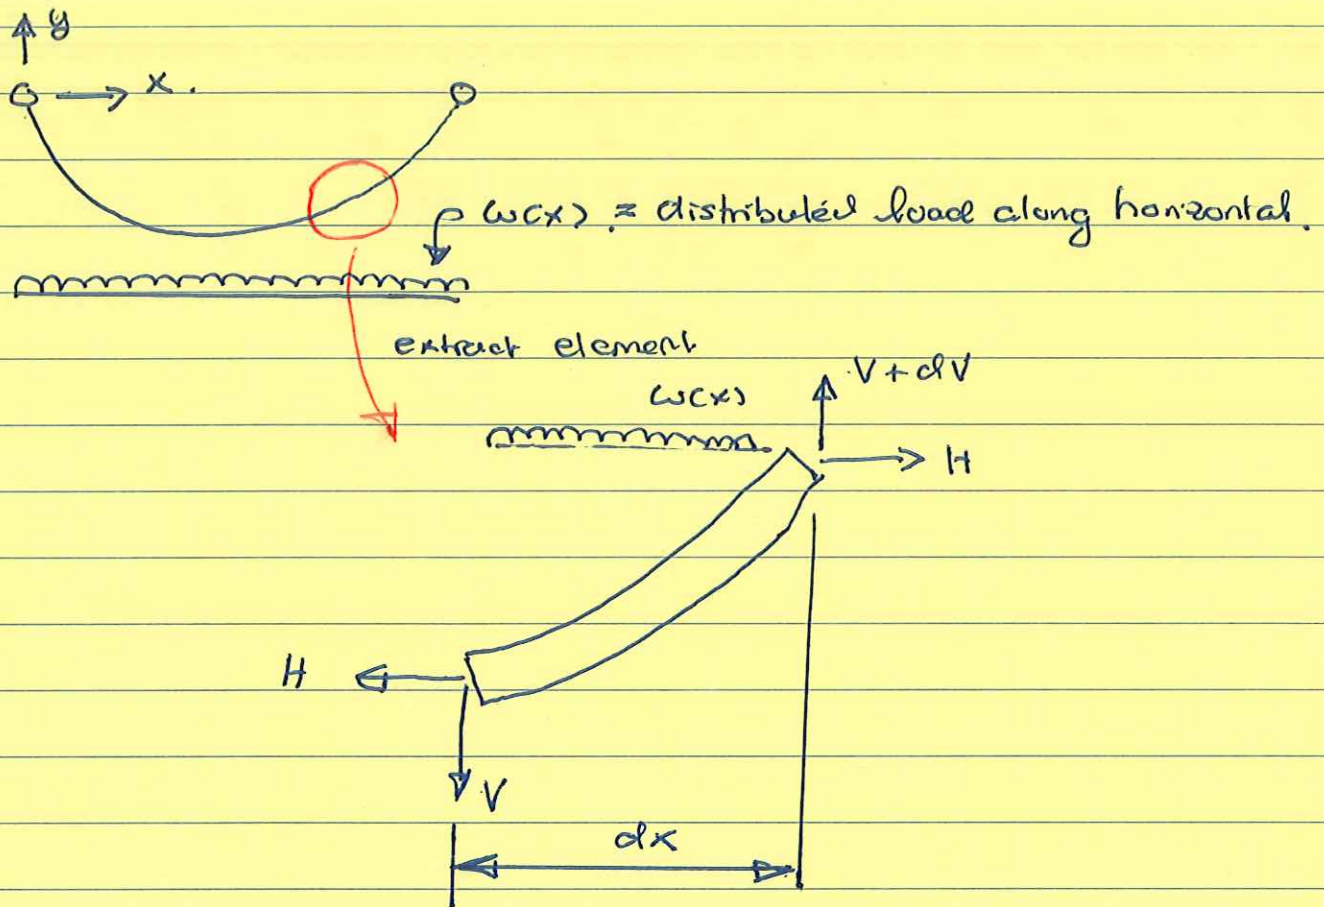 y
x.
w(x) = distributed load along horizontal.
extract element
w(x)
V + dV
H
H
V
dx